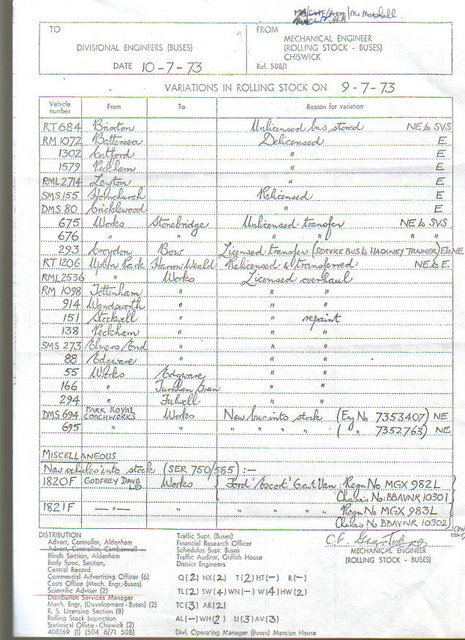 TO
FROM
DIVISIONAL ENGINEERS (BUSES)
MECHANICAL ENGINEER
(ROLLING STOCK - BUSES)
CHISWICK
DATE 10-7-73
Ref. 508/1
VARIATIONS IN ROLLING STOCK ON 9-7-73
Vehicle number From To Reason for variation
RT 684 Brixton Unlicensed bus stored NE to SVS
RM 1072 Battersea Delicensed E
1302 Catford " E
1579 Peckham " E
RML 2714 Leyton " E
SMS 155 Hornchurch Relicensed E
DMS 80 Cricklewood " E
675 Works Stonebridge Unlicensed transfer NE to SVS
676 " " " " " "
293 Croydon Bow Licensed transfer (SERVICE BUS to HACKNEY TRAINER) E to NE
RT 1206 Upton Park Harrow Weald Relicensed & transferred NE to E
RML 2536 " Works Licensed overhaul
RM 1098 Tottenham " " "
914 Wandsworth " " "
151 Stockwell " " repaint
138 Peckham " " "
SMS 273 Elmers End " " "
88 Edgware " " "
55 Works Edgware " "
166 " Turnham Green " "
294 " Fulwell " "
DMS 694 PARK ROYAL COACHWORKS Works New bus into stock (Eng No 7353407) NE
695 " " " " " " ( " 7352763) NE
MISCELLANEOUS
New vehicles into stock (SER 750/585) :-
1820F GODFREY DAVIS LTD Works Ford 'Escort' Estate Van : Regn No MGX 982L
Chassis No: BBAVNR 10301
1821F - " - " " " " Regn No MGX 983L
Chassis No BBAVNR 10302
MECHANICAL ENGINEER
(ROLLING STOCK - BUSES)
DISTRIBUTION
Advert. Controller, Aldenham
Advert. Controller, Camberwell
Blinds Section, Aldenham
Body Spec. Section,
Central Record
Commercial Advertising Officer (6)
Costs Office (Mech. Engr.-Buses)
Scientific Adviser (2)
Distribution Services Manager
Mech. Engr. (Development - Buses) (2)
R. S. Licensing Section (8)
Rolling Stock Inspection
Statistical Office - Chiswick (2)
408/69 (1) (504 6/7) 508
Traffic Supt. (Buses)
Financial Research Officer
Schedules Supt. Buses
Traffic Auditor, Griffith House
District Engineers
Q (2) NX (2) T (2) HT (-) R (-)
TL (2) SW (4) WN (-) W (4) HW (2)
TC (3) AR (2)
AL (-) WH (2) U (3) AV (3)
Divl. Operating Manager (Buses) Mansion House